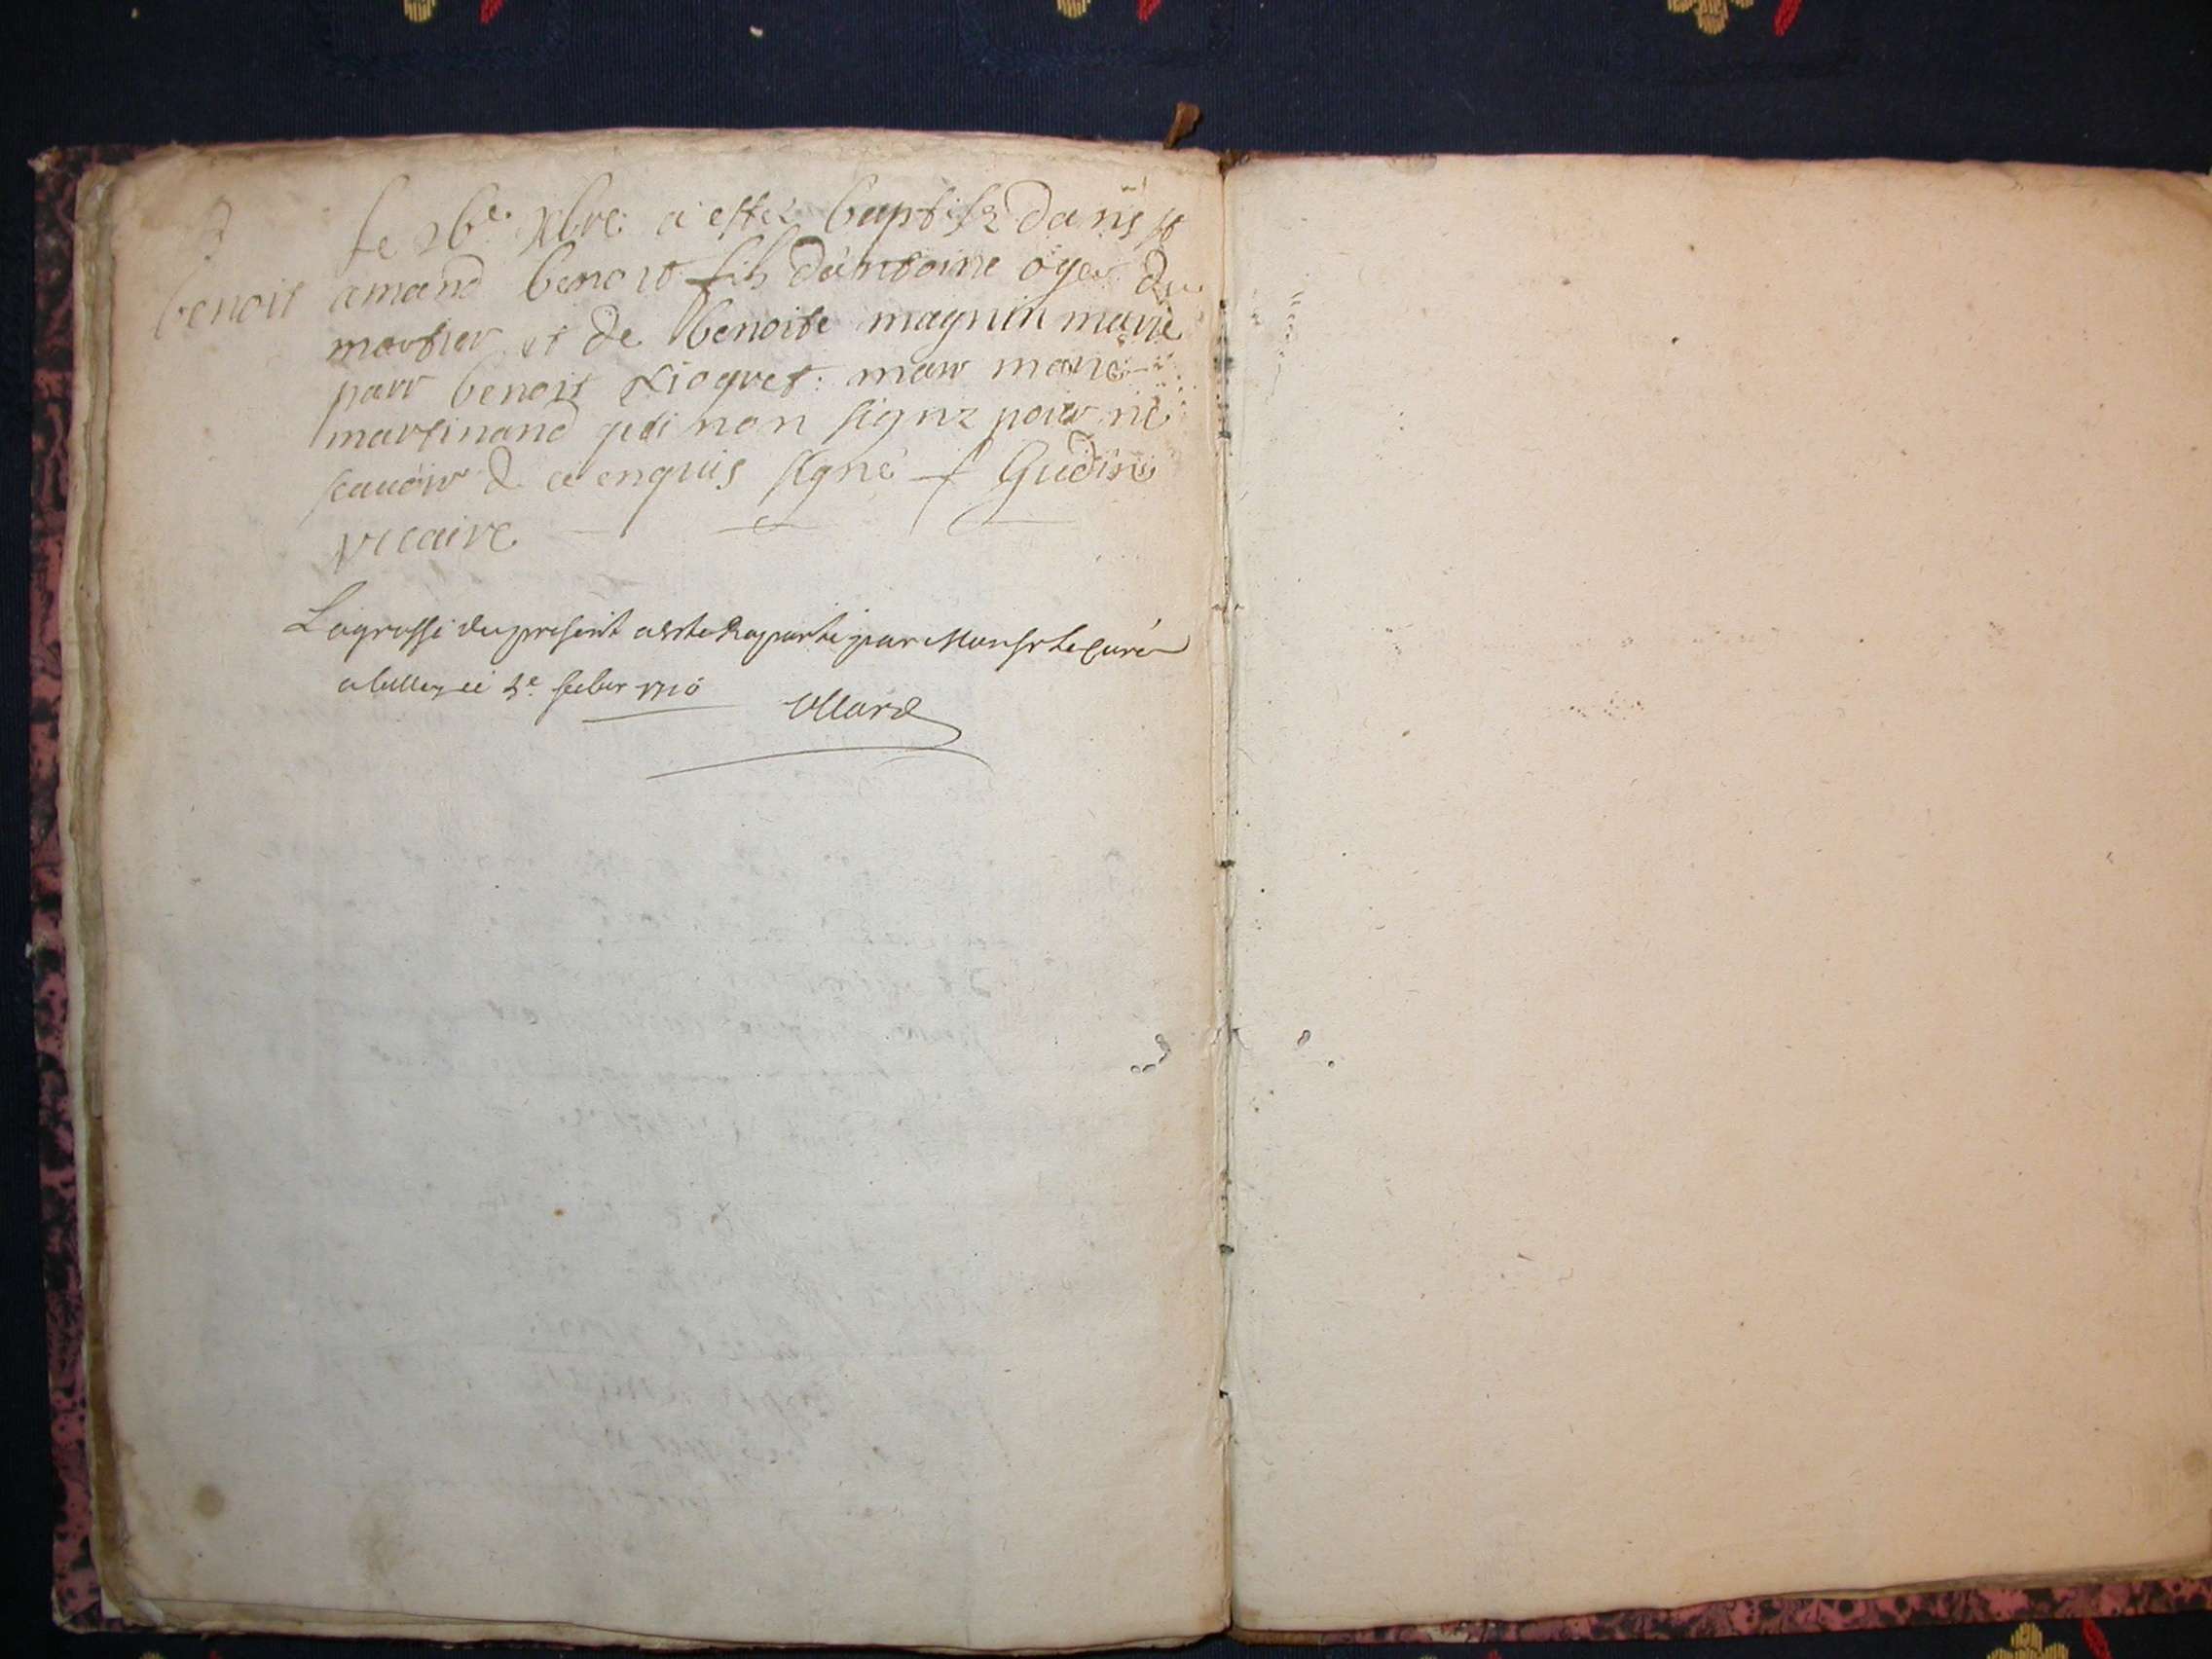 le 26e. xbre a estez baptisz dans st
benoit amand benoit fils d'antoine oger du
mortier et de benoite magnin marié
parr benoit Liogret: marr marie
martinand qui non signz pour ne
scauoir d ce enquis signé f Gudin
vicaire
La grosse du present a este Raporté par Monsr le Curé
a ce 3e febur 1710
Allard